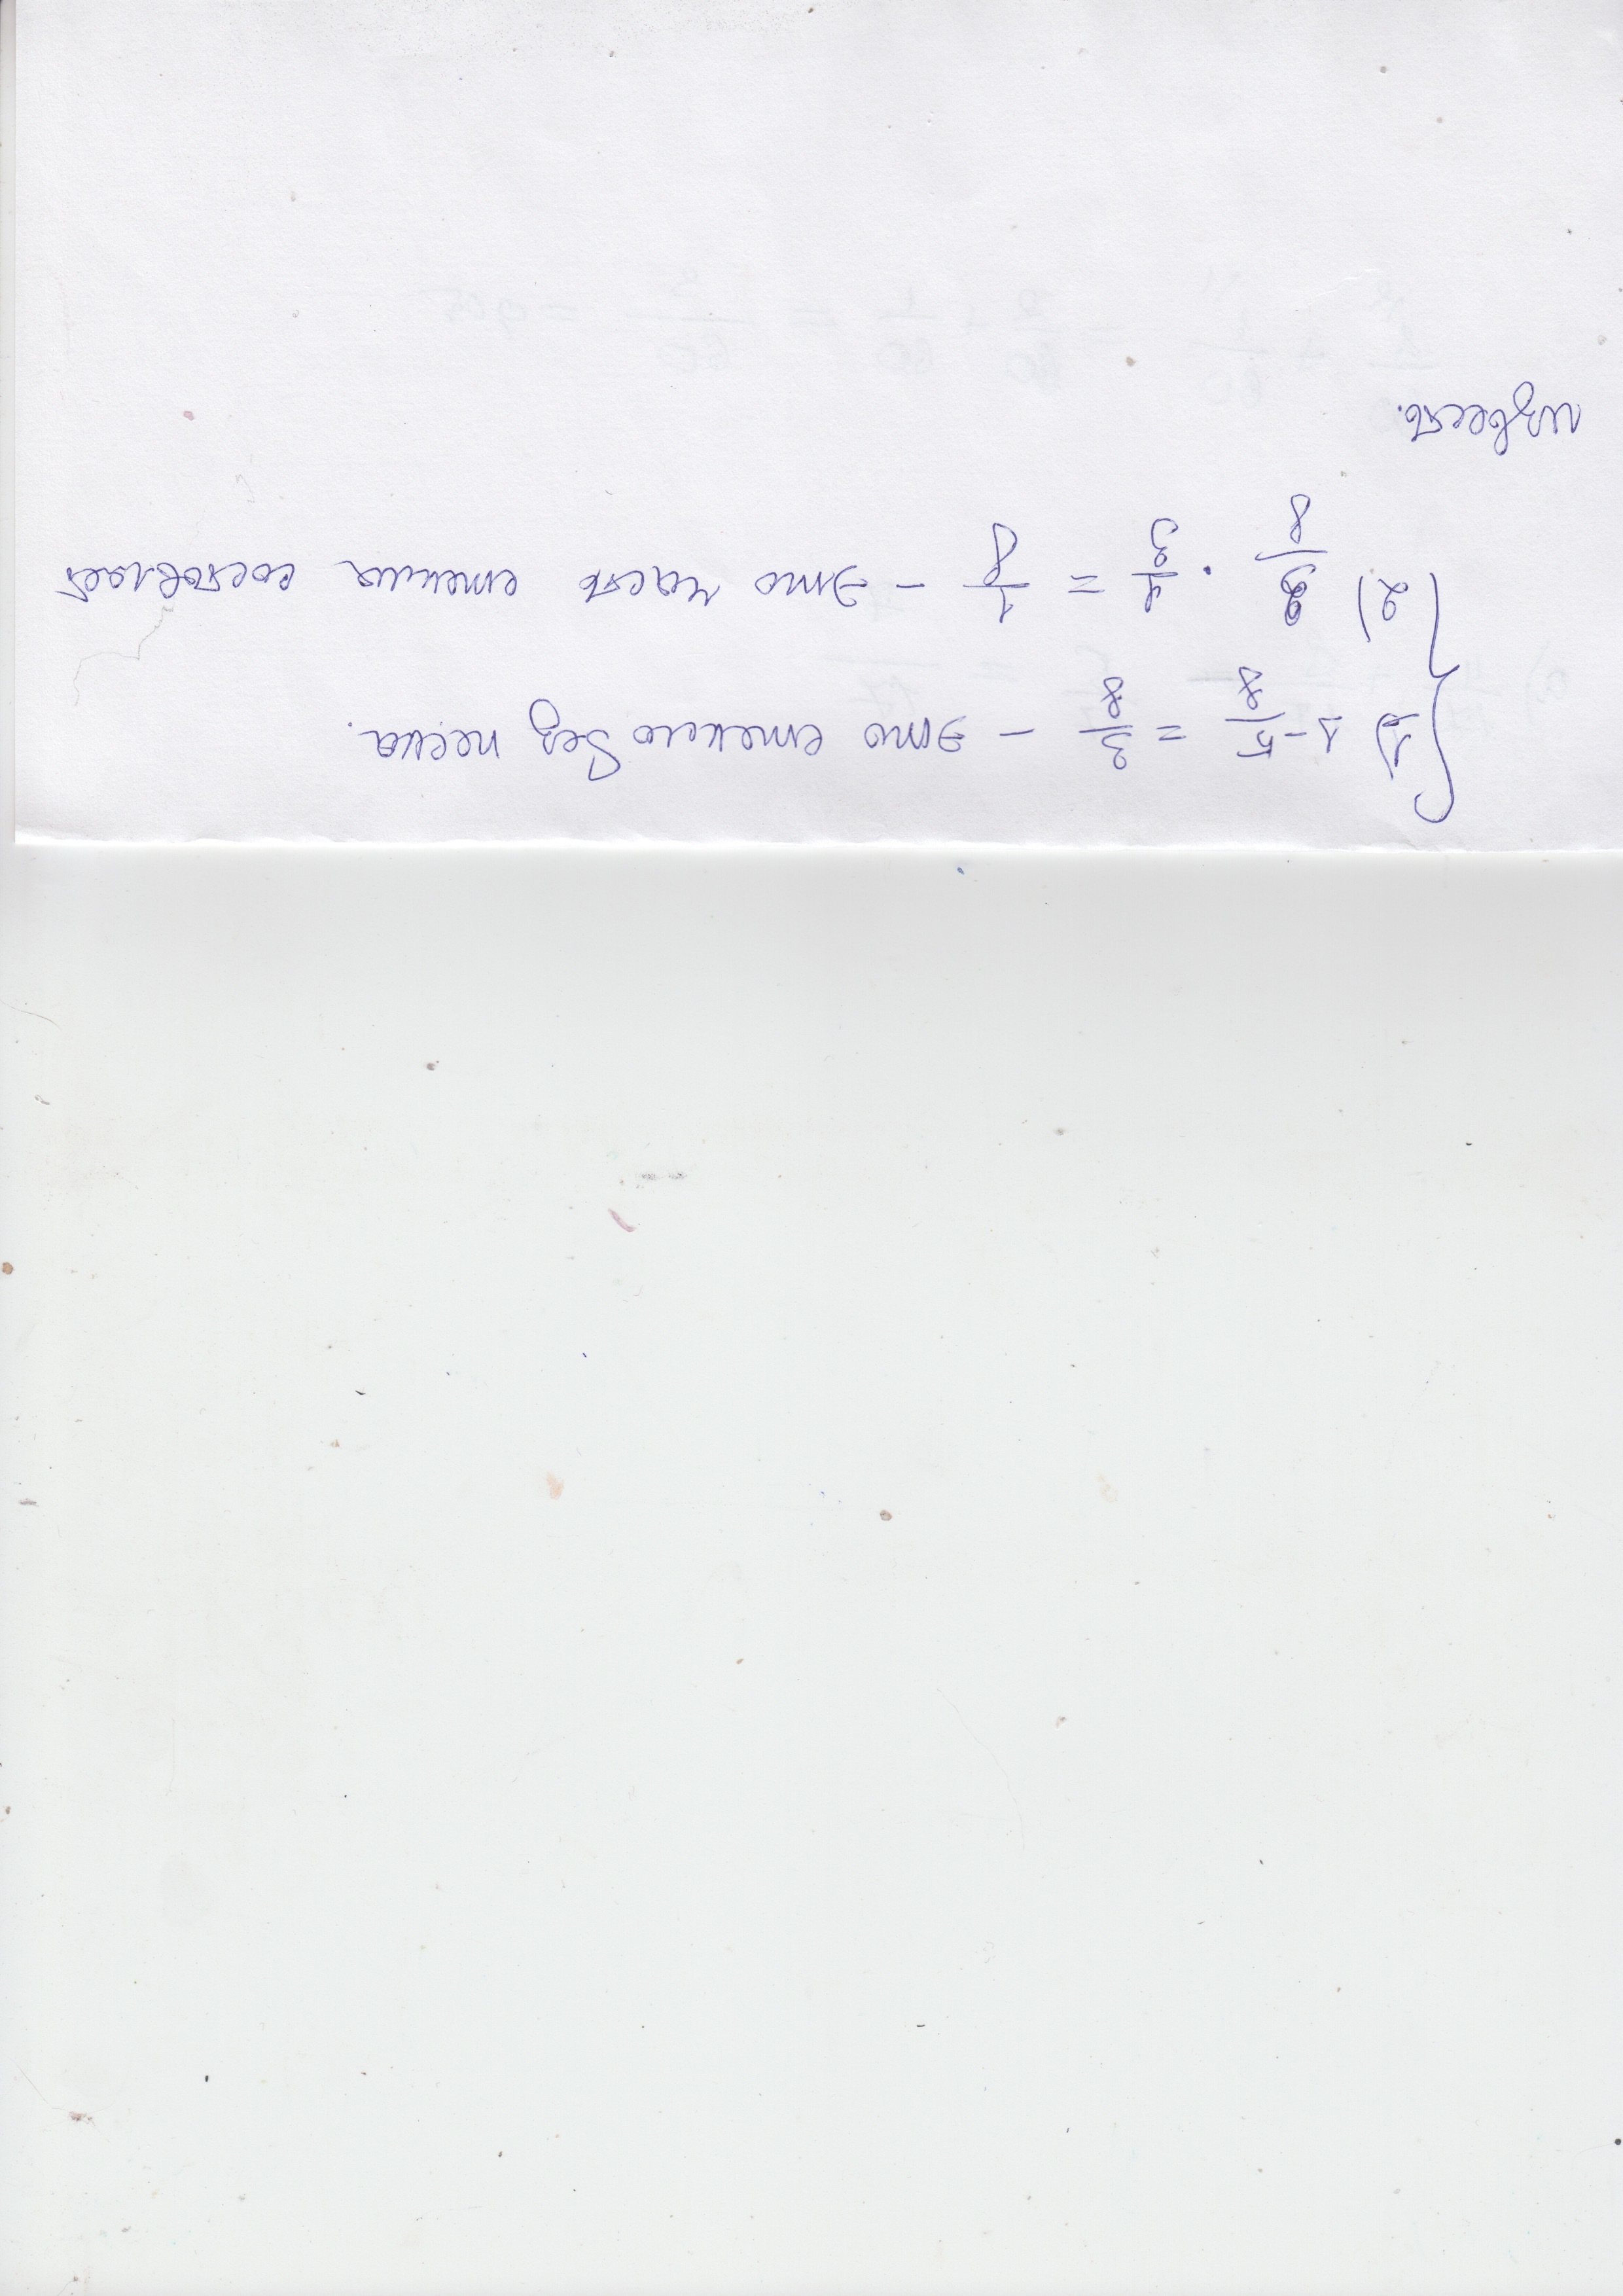 1) 1 - 5/8 = 3/8 - это стекло без песка.
2) 3/8 · 1/3 = 1/8 - это часть стекла составляет
известь.